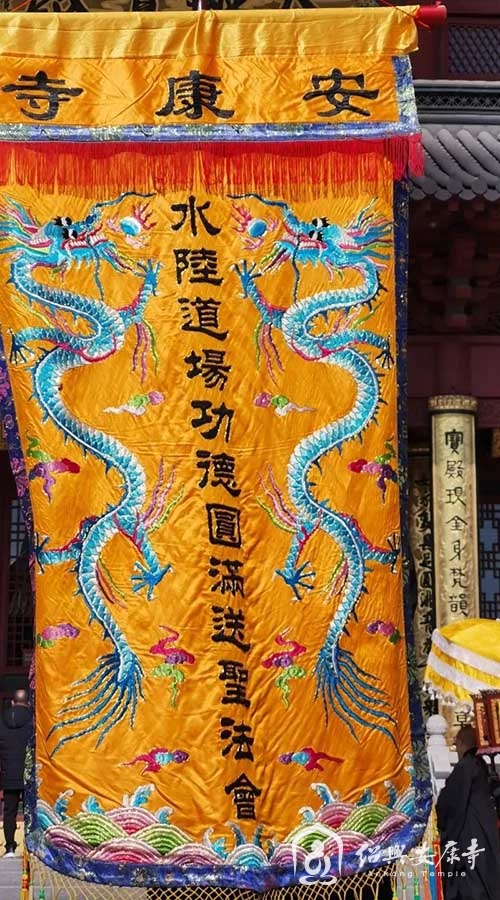 安康寺
水陸道場功德圓滿送聖法會
寶殿現金身梵韻
紹興安康寺
AnKang Temple